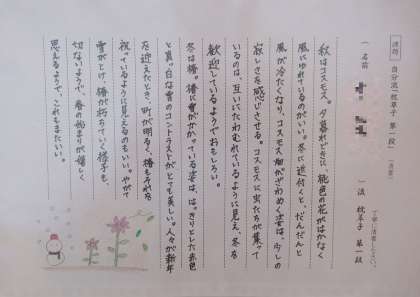 課題 自分流「枕草子 第一段」（清書）
丁寧に清書しなさい。
一 名前
流 枕草子 第一段
秋はコスモス。夕暮れどきに、桃色の花がはかなく
風にゆれているのがいい。冬に近付くと、だんだんと
風が冷たくなり、コスモス畑がざわめく姿は、少しの
寂しさを感じさせる。コスモスに虫たちが集って
いるのは、互いにたわむれているように見え、冬を
歓迎しているようでおもしろい。
冬は椿。椿に雪がかかっている姿は、はっきりとした赤色
と真っ白な雪のコントラストがとても美しい。人々が新年
を迎えたとき、町が明るく、椿もそれを
祝っているように見えるのもいい。やがて
雪がとけ、椿が朽ちていく様子も、
切ないようで、春の始まりが嬉しく
思えるようで、これもまたいい。